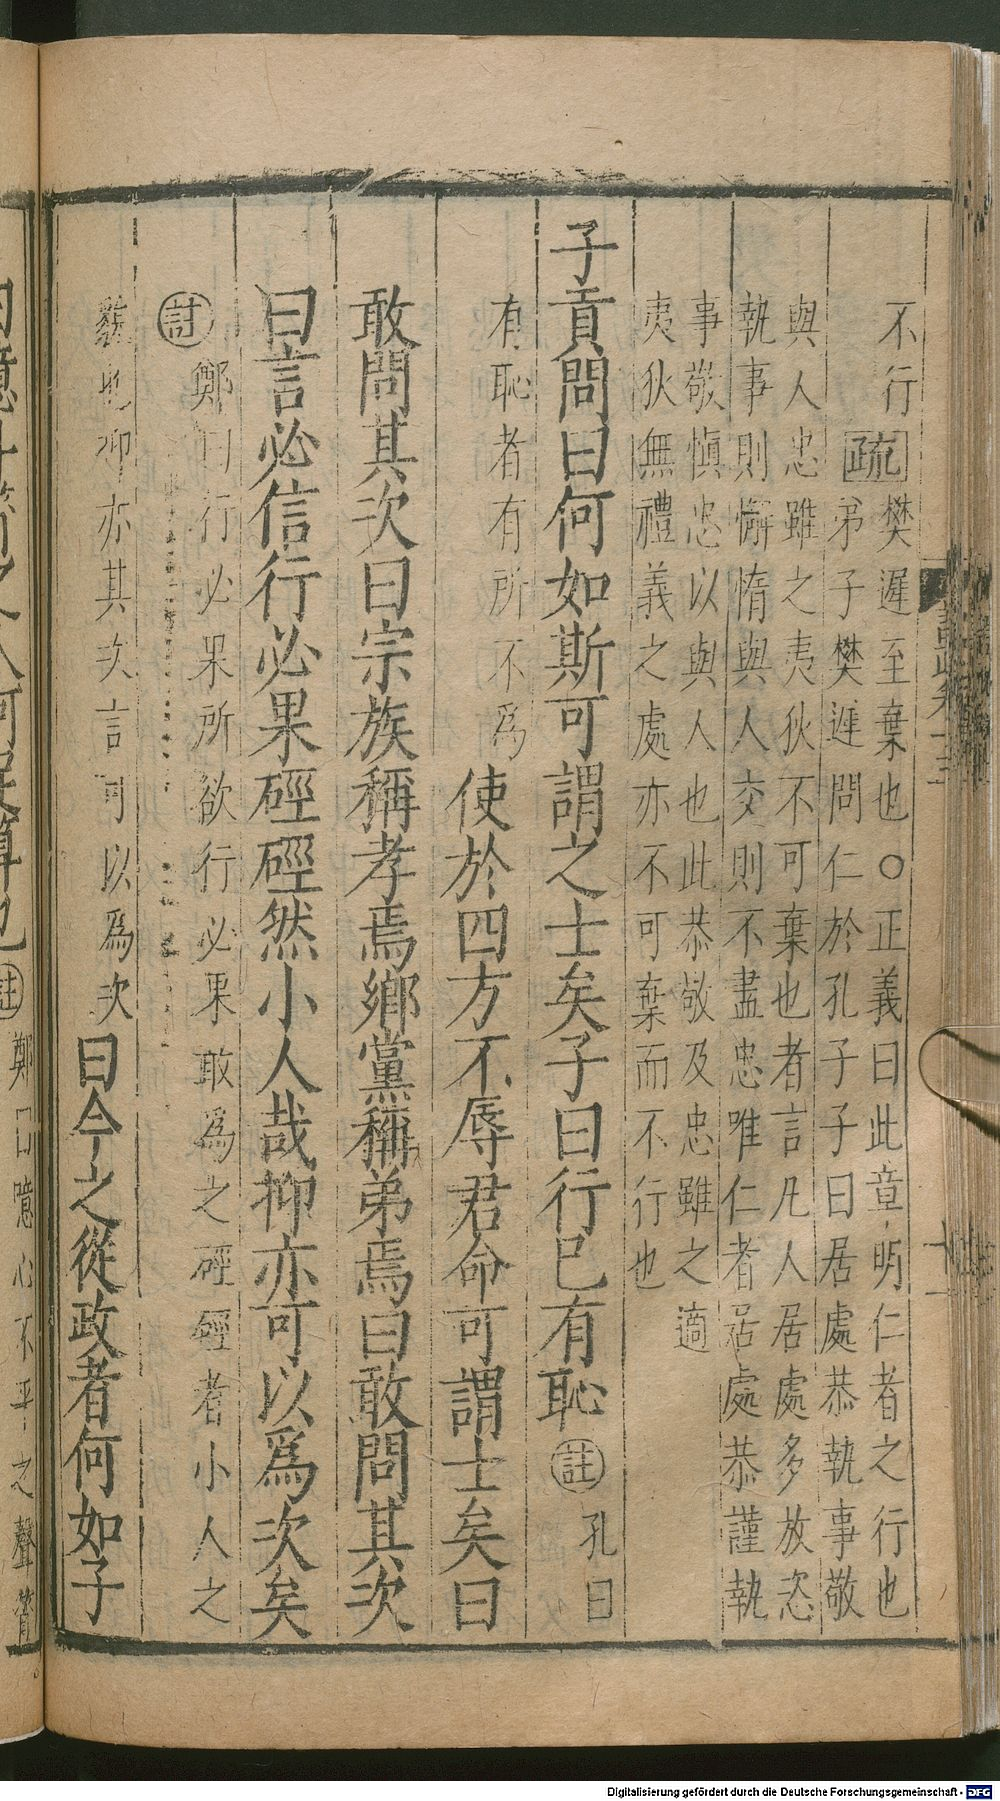 不行
疏
樊遲至棄也○正義曰此章明仁者之行也
弟子樊遲問仁於孔子子曰居處恭執事敬
與人忠雖之夷狄不可棄也者言凡人居處多放恣
執事則懈惰與人交則不盡忠唯仁者居處恭謹執
事敬慎忠以與人也此恭敬及忠雖之適
夷狄無禮義之處亦不可棄而不行也
子貢問曰何如斯可謂之士矣子曰行已有恥
註
孔曰
有恥者有所不為
使於四方不辱君命可謂士矣曰
敢問其次曰宗族稱孝焉鄉黨稱弟焉曰敢問其次
曰言必信行必果硜硜然小人哉抑亦可以為次矣
註
鄭曰行必果所欲行必果敢為之硜硜者小人之
抑亦其次言可以為次
曰今之從政者何如子
註
鄭曰噫心不平之聲筲
Digitalisierung gefördert durch die Deutsche Forschungsgemeinschaft - DFG